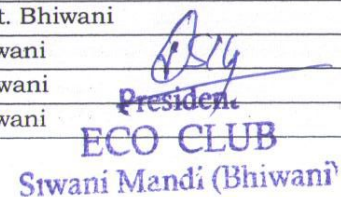 t. Bhiwani
wani
wani
President
wani
ECO CLUB
Siwani Mandi (Bhiwani)